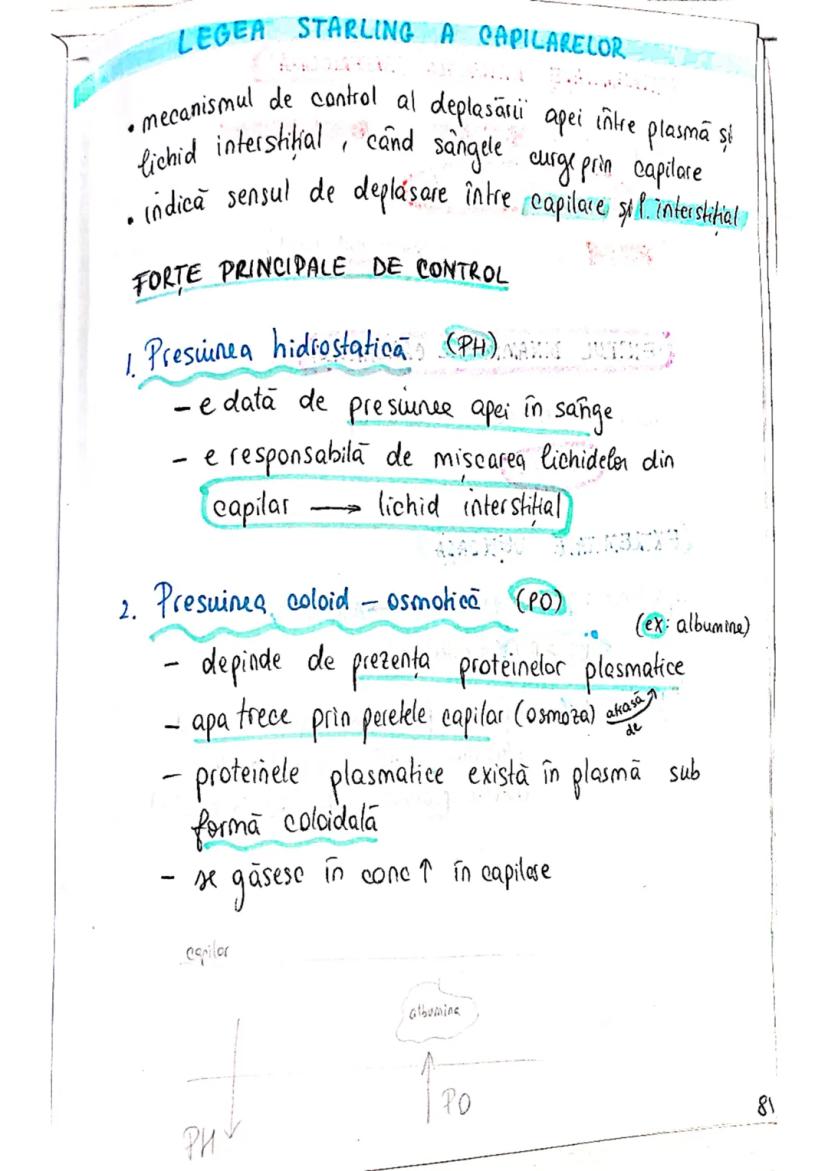 LEGEA STARLING A CAPILARELOR
• mecanismul de control al deplasării apei între plasmă și
lichid interstițial, când sângele curge prin capilare
• indică sensul de deplasare între capilare și l. interstițial
FORȚE PRINCIPALE DE CONTROL
1. Presiunea hidrostatică (PH)
- e dată de presiunea apei în sânge
- e responsabilă de mișcarea lichidelor din
capilar → lichid interstițial
2. Presiunea coloid-osmotică (PO)
(ex: albumine)
- depinde de prezența proteinelor plasmatice
- apa trece prin peretele capilar (osmoza) atrasă de
- proteinele plasmatice există în plasmă sub
formă coloidală
- se găsesc în conc ↑ în capilare
capilar
albumine
PH
PO
81